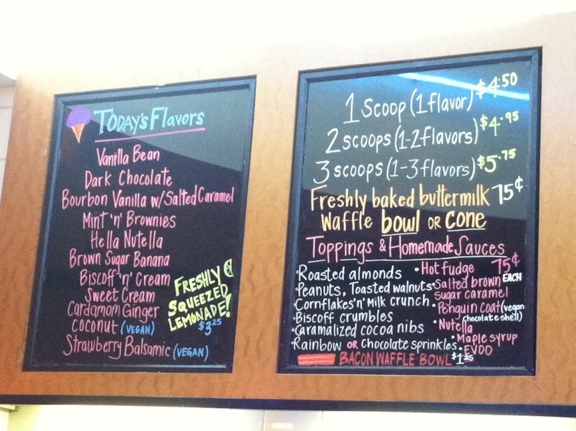 Today's Flavors
Vanilla Bean
Dark Chocolate
Bourbon Vanilla w/Salted Caramel
Mint 'n' Brownies
Hella Nutella
Brown Sugar Banana
Biscoff 'n' Cream
Sweet Cream
Cardamom Ginger
Coconut (VEGAN)
Strawberry Balsamic (VEGAN)
FRESHLY
SQUEEZED
LEMONADE!
$3.25
1 Scoop (1 flavor) $4.50
2 scoops (1-2 flavors) $4.95
3 scoops (1-3 flavors) $5.75
Freshly baked buttermilk 75¢
Waffle bowl or cone
Toppings & Homemade Sauces
75¢ EACH
Roasted almonds
Peanuts, Toasted walnuts
Cornflakes 'n' Milk crunch
Biscoff crumbles
Caramalized cocoa nibs
Rainbow or Chocolate sprinkles
• Hot fudge
Salted brown
sugar caramel
Penguin coat (vegan
chocolate shell)
• Nutella
• Maple syrup
• EVOO
BACON WAFFLE BOWL